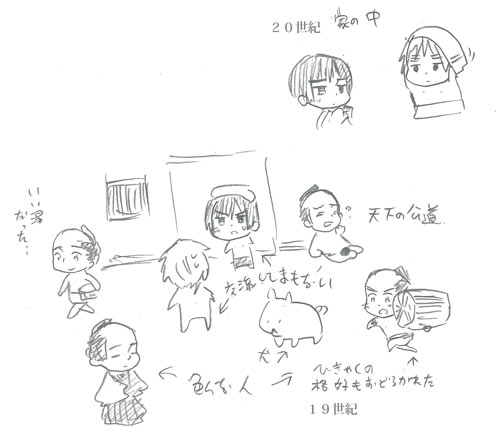 20世紀 家の中
いい湯
だった…
天下の公道
交流してまもない
犬
色んな人
ひきゃくの
格好もおどろかれた
19世紀